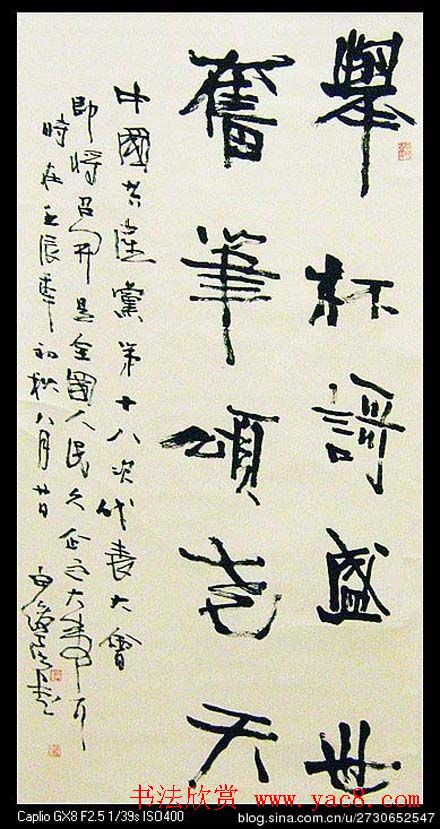 舉杯謌盛世
奮筆頌尧天
中國共産黨第十八次代表大會
即将召开是全國人民久企之大事
時在壬辰年初秋八月
书法欣赏 www.yac8.com
Caplio GX8 F2.5 1/39s ISO400
blog.sina.com.cn/u/2730652547